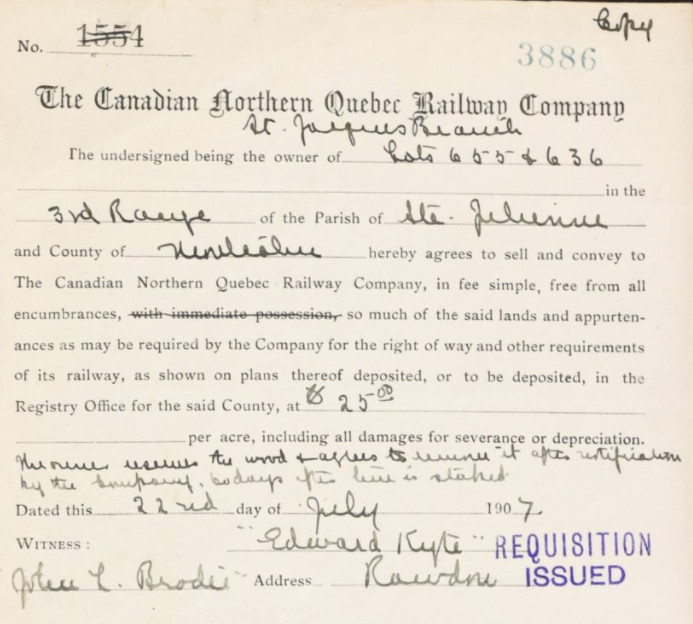 Copy
No. 1554
3886
The Canadian Northern Quebec Railway Company
St. Jacques Branch
The undersigned being the owner of Lots 655 & 636
in the
3rd Range of the Parish of Ste. Julienne
and County of Montcalm hereby agrees to sell and convey to
The Canadian Northern Quebec Railway Company, in fee simple, free from all
encumbrances, with immediate possession, so much of the said lands and appurten-
ances as may be required by the Company for the right of way and other requirements
of its railway, as shown on plans thereof deposited, or to be deposited, in the
Registry Office for the said County, at $ 25 00
per acre, including all damages for severance or depreciation.
The owner reserves the wood & agrees to remove it after notification
by the Company. days after line is staked
Dated this 22nd day of July 1907.
WITNESS: "Edward Kyte" REQUISITION
"John L. Brodie" Address Rawdon ISSUED